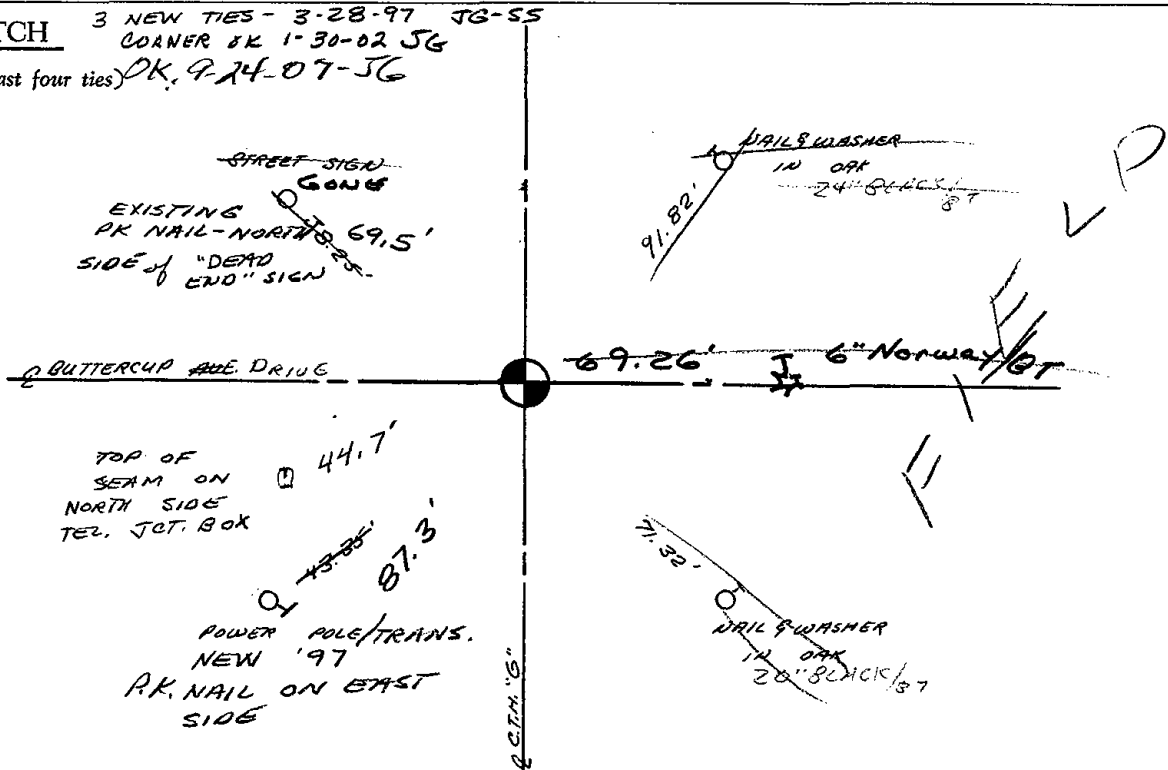 TCH
3 NEW TIES - 3-28-97 JG-SS
CORNER OK 1-30-02 JG
ast four ties) OK. 9-24-07-JG
STREET SIGN
GONE
EXISTING
PK NAIL-NORTH
SIDE of "DEAD
END" SIGN
69.5'
38.25
NAIL & WASHER
IN OAK
24" BLACK/BT
91.82'
℄ BUTTERCUP AVE DRIVE
69.26'
6" Norway/BT
TOP OF
SEAM ON
NORTH SIDE
TEL. JCT. BOX
44.7'
43.35'
87.3'
POWER POLE/TRANS.
NEW '97
P.K. NAIL ON EAST
SIDE
71.32'
NAIL & WASHER
IN OAK
20" BLACK/BT
℄ C.T.H. "G"